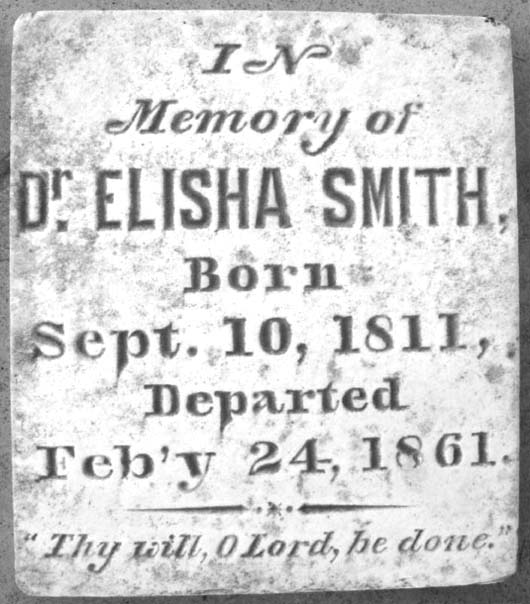 IN
Memory of
Dr. ELISHA SMITH,
Born
Sept. 10, 1811,
Departed
Feb'y 24, 1861.
"Thy will, O Lord, be done."